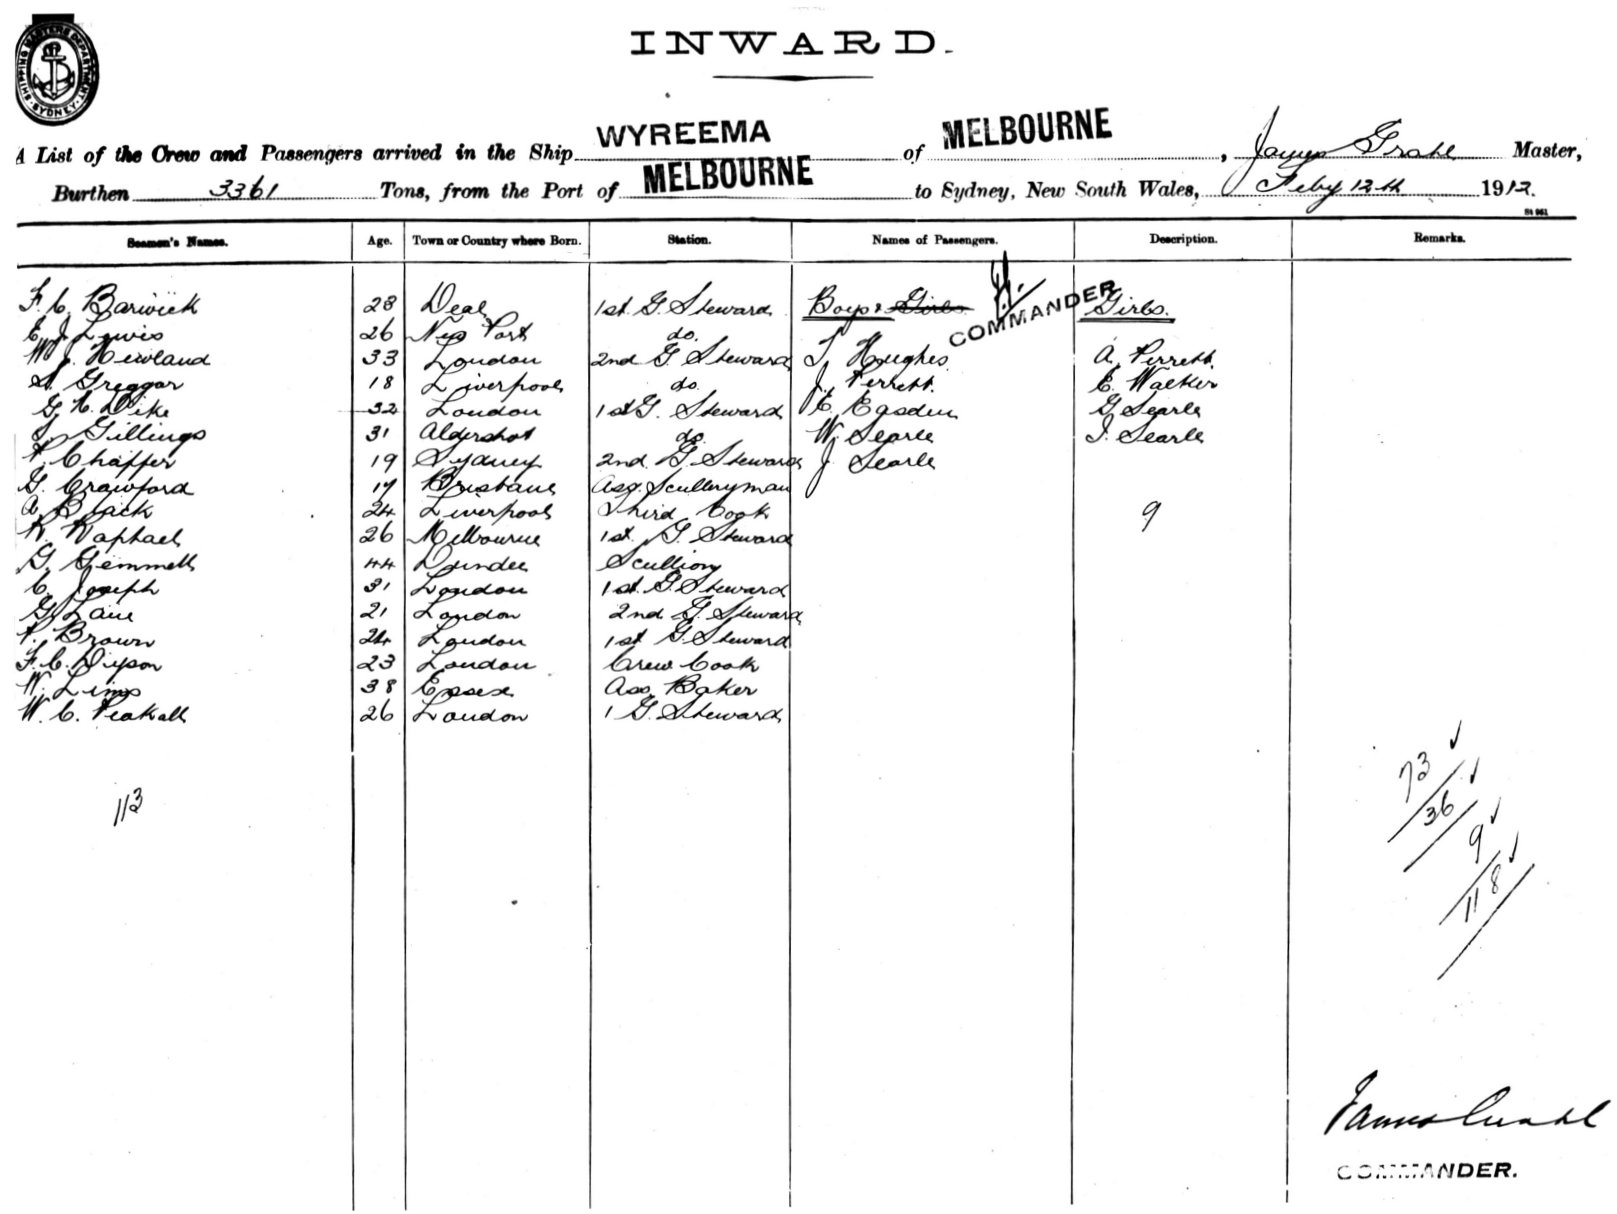 SHIPPING MASTERS DEPARTMENT
SYDNEY
INWARD.
A List of the Crew and Passengers arrived in the Ship WYREEMA of MELBOURNE, James Grahl Master,
Burthen 3361 Tons, from the Port of MELBOURNE to Sydney, New South Wales, Feby 12th 1912.
St 961
Seamen's Names. Age. Town or Country where Born. Station. Names of Passengers. Description. Remarks.
COMMANDER
F. C. Barwick 28 Deal 1st G. Steward Boys & Girls Girls.
E. J. Lewis 26 New Port do.
W. J. Newland 33 London 2nd G. Steward T. Hughes A. Perrett
S. Greggor 18 Liverpool do. J. Perrett E. Walker
G. C. Dike 32 London 1st G. Steward E. Easden G. Searle
J. Gillings 31 Aldershot do. W. Searle I. Searle
F. Chaffer 19 Sydney 2nd G. Steward J. Searle
G. Crawford 17 Brisbane Ass. Sculleryman
A. Black 24 Liverpool Third Cook 9
R. Raphael 26 Melbourne 1st G. Steward
G. Gemmell 44 Dundee Scullion
C. Joseph 31 London 1st G. Steward
G. Lane 21 London 2nd G. Steward
F. Brown 24 London 1st G. Steward
F. C. Dyson 23 London Crew Cook
W. Lims 38 Essex Ass. Baker
W. C. Peakall 26 London 1 G. Steward
113
73
36
9
118
James Grahl
COMMANDER.